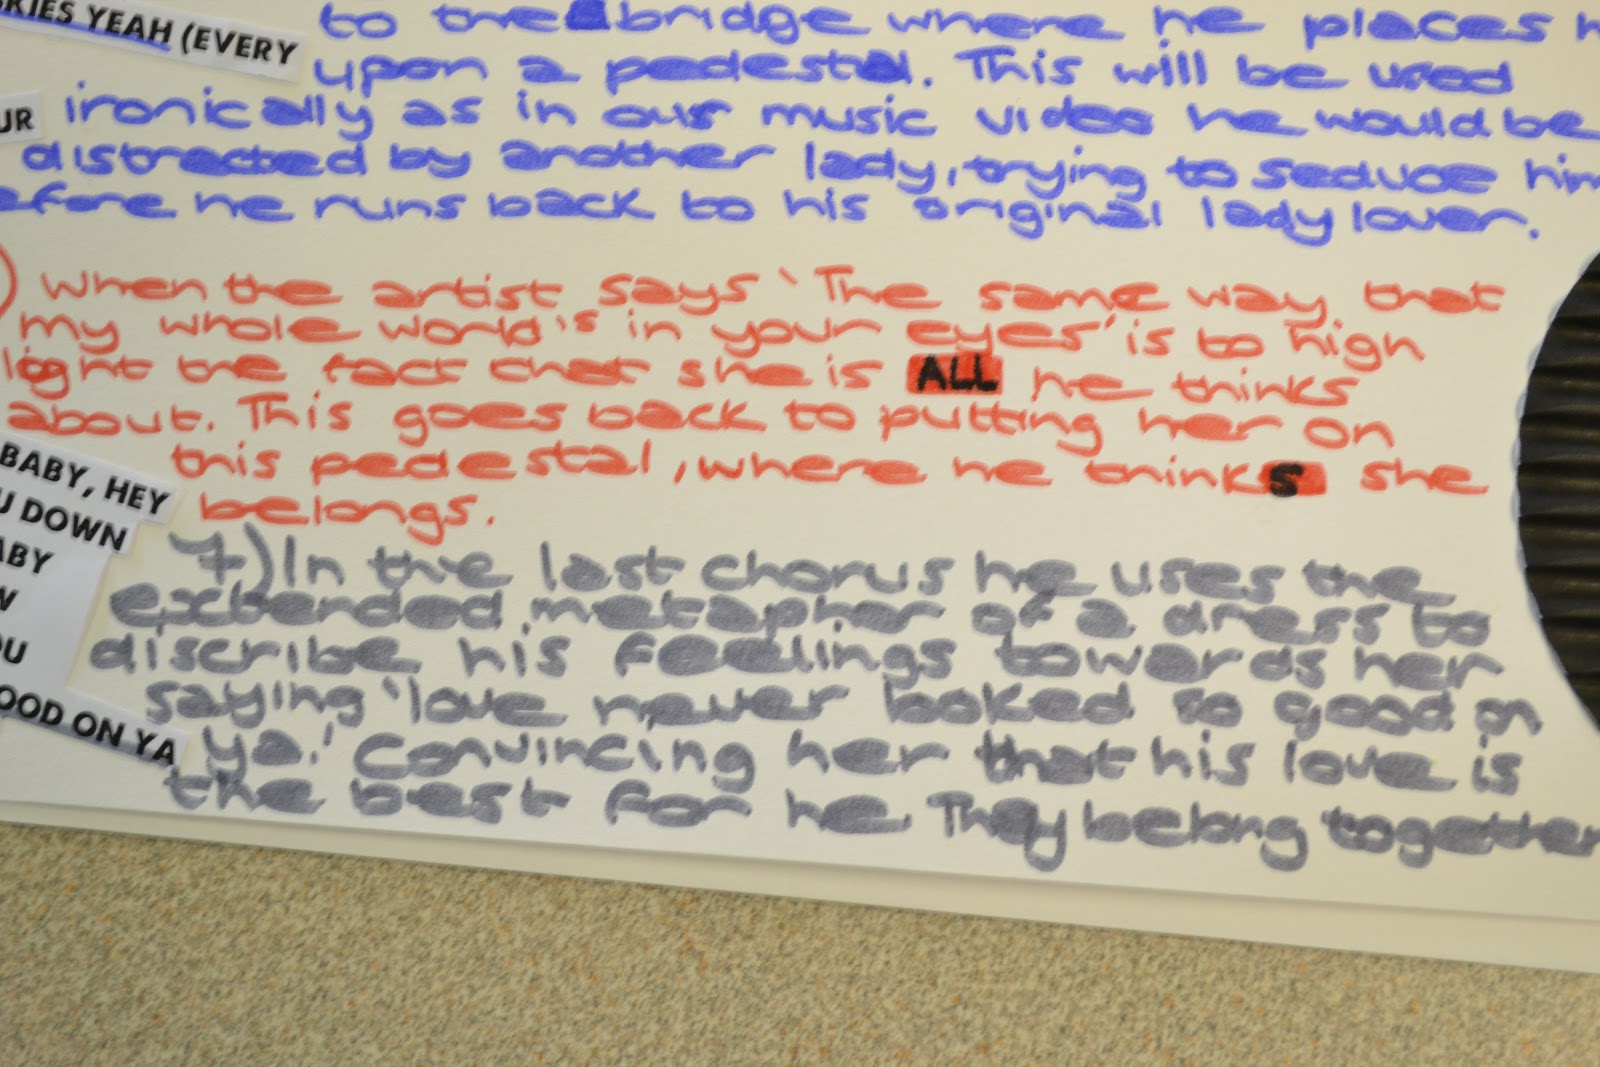 KIES YEAH (EVERY
UR
to the bridge where he places h
upon a pedestal. This will be used
ironically as in our music video he would be
distracted by another lady, trying to seduce him
efore he runs back to his original lady lover.
) When the artist says 'The same way that
my whole world's in your eyes' is to high
light the fact that she is ALL he thinks
about. This goes back to putting her on
this pedestal, where he thinks she
belongs.
BABY, HEY
U DOWN
ABY
W
OU
OOD ON YA
7) In the last chorus he uses the
extended metaphor of a dress to
discribe his feelings towards her
saying 'love never looked so good on
ya.' Convincing her that his love is
the best for he. They belong together